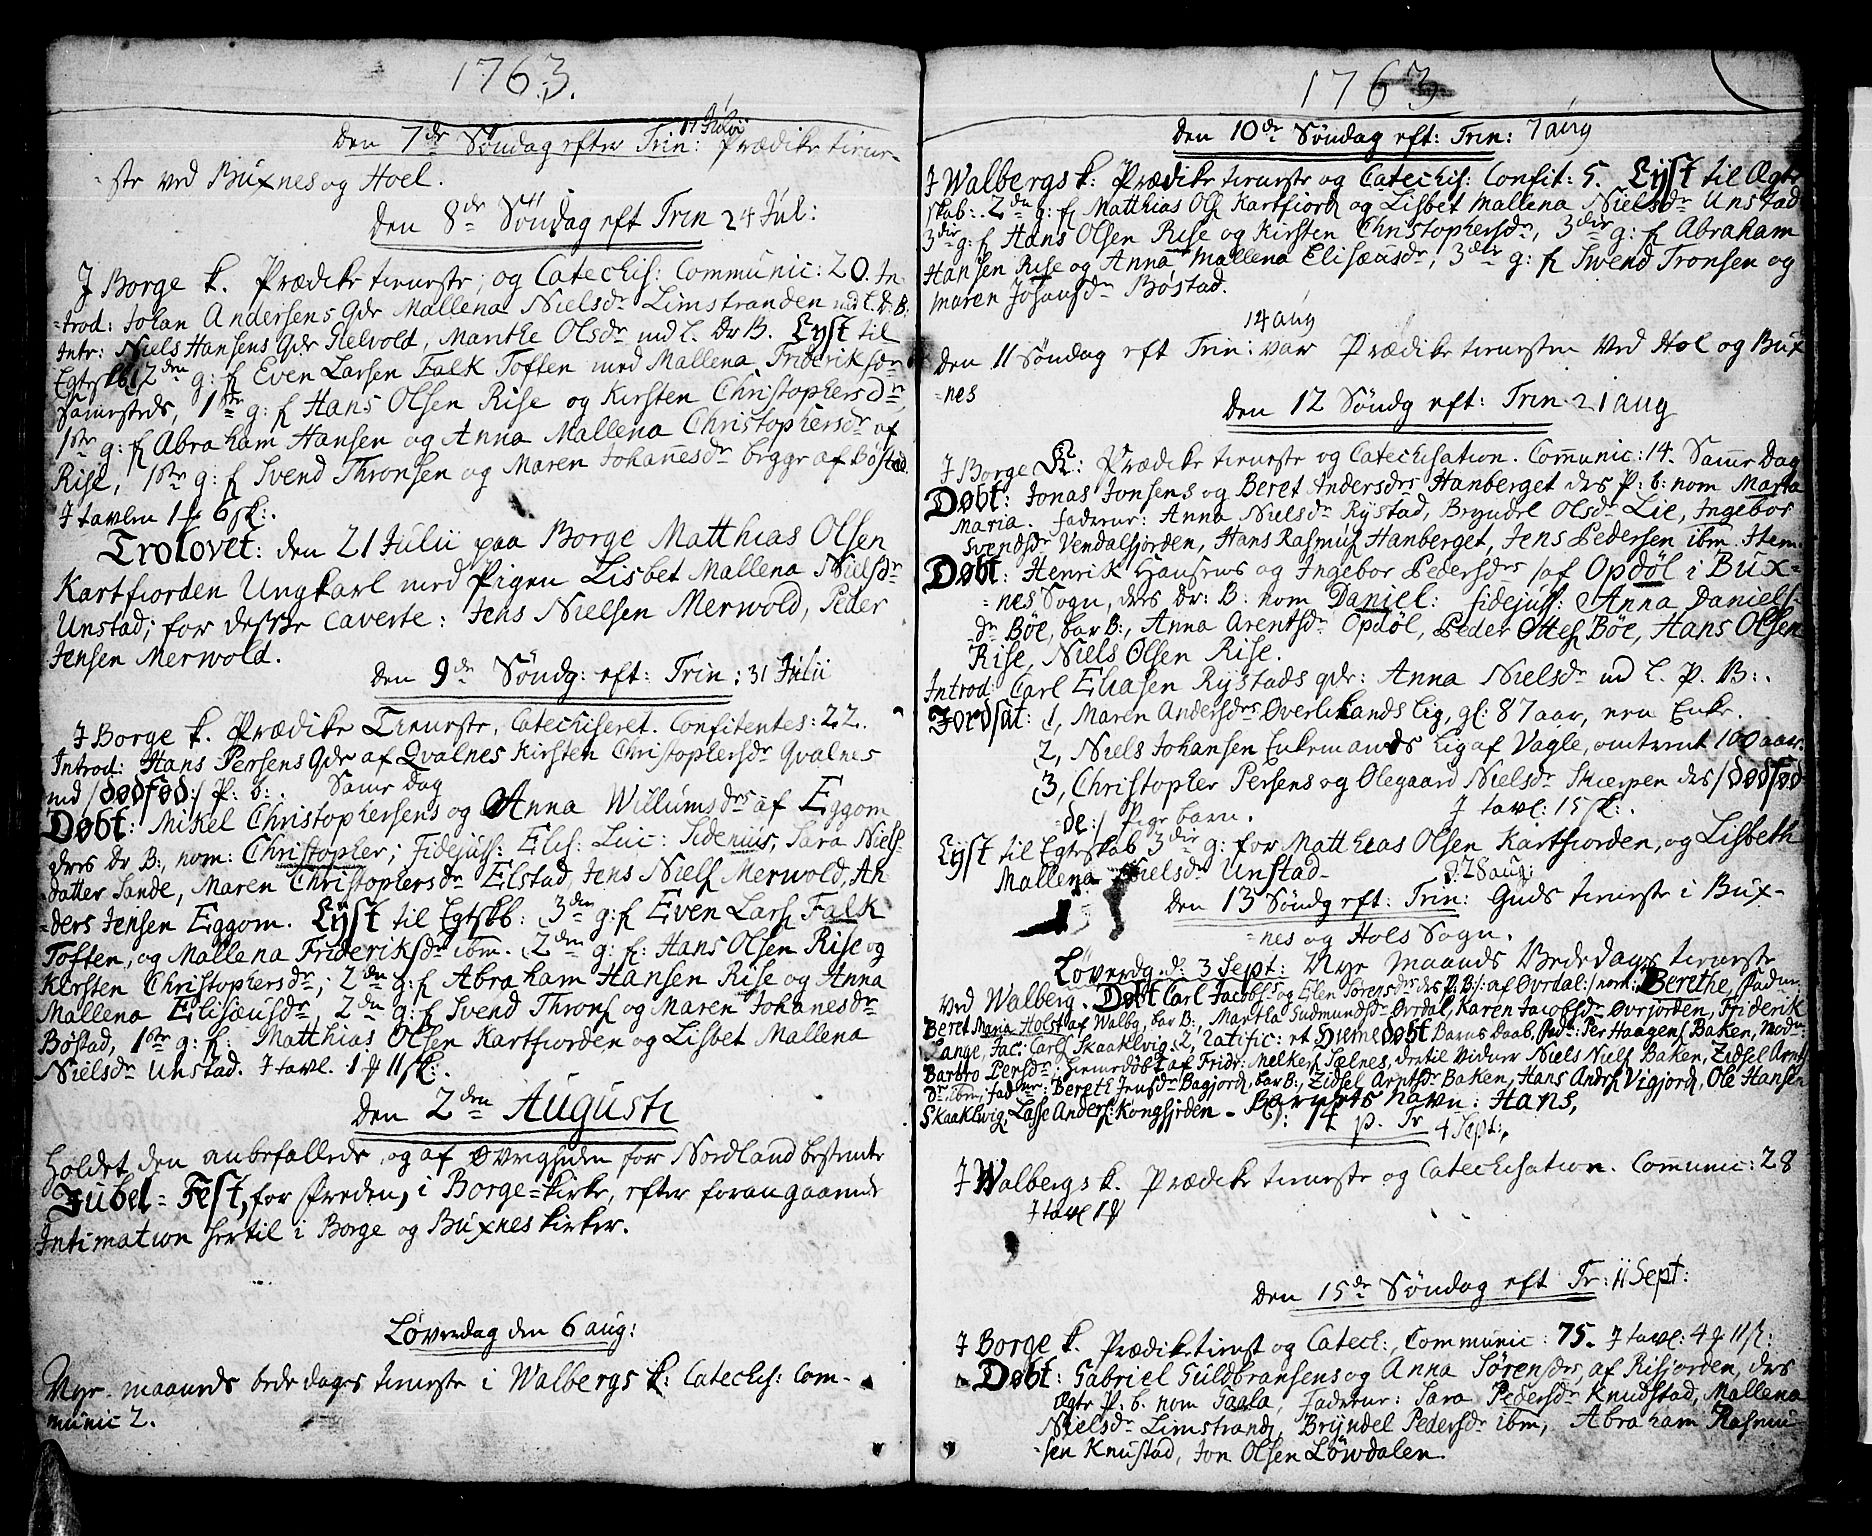 1763.
Den 7de Søndag efter Trin: 17 Julii Prædiketienne-
ste ved Buxnes og Hoel.
Den 8de Söndag eft Trin 24 Jul:
J Borge k. Prædiketieneste, og Catechis: Communic: 20. In-
-trod: Johan Andersens qdr Mallena Nielsdr Limstranden md l. D: B:
Intr: Niels Hansens qdr Helvold, Manthe Olsdr md l. Dr B. Lyst til
Egteskb: 2den g: f Even Larsen Falk Toften med Mallena Frideriksdr
Sammesteds, 1ste g: f Hans Olsen Rise og Kirsten Christophersdr,
1ste g: f Abraham Hansen og Anna Mallena Christophersdr af
Rise, 1ste g: f Svend Thronsen og Maren Johannesdr begge af Bøstad.
J tavlen 1 # 6 sk:.
Trolovet: den 21 Julii paa Borge Matthias Olsen
Kartfiorden Ungkarl med Pigen Lisbet Mallena Nielsdr
Unstad; for desse caverte: Jens Nielsen Merwold, Peder
Jensen Merwold.
Den 9de Söndg: eft: Trin: 31 Julii
J Borge k. Prædike Tieneste, Catechiseret. Confitentes: 22.
Introd: Hans Persens qdr af Qvalnes Kirsten Christophersdr Qvalnes
md /:dødfød:/ P: b:. Same Dag
Døbt: Mikel Christophersens og Anna Willumsdrs af Eggom
deres Dr B:, nom: Christopher; Fidejuss: Elis: Luc: Sidenius, Sara Niels-
datter Sande, Maren Christophersdr Elstad, Jens Niels Merwold, An-
-ders Jensen Eggom. Lyst til Egtskb: 3den g: f Even Lars Falk
Toften, og Mallena Frideriksdr ibm. 2den g: f: Hans Olsen Rise og
Kirsten Christophersdr; 2den g: f Abraham Hansen Rise og Anna
Mallena Elisæusdr, 2den g: f Svend Throns og Maren Johanesdr
Bøstad, 1ste g: f: Matthias Olsen Kartfiorden og Lisbet Mallena
Nielsdr Unstad. J tavl. 1 # 11 sk:.
Den 2den Augusti
holdet den anbefallede, og af Øvrigheden for Nordland bestemte
Jubel-Fest, for Freden, i Borge-kirke, efter foran gaaende
Intimation hertil i Borge og Buxnes kirker.
Løverdag den 6 aug:
Nye-maaneds bededages tieneste i Walbergs k: Catechs: Com-
munic 2.
1763
Den 10de Søndag eft: Trin: 7 aug
J Walbergs k: Prædiketieneste og Catechis: Confit: 5. Lyst til Ægte
skab: 2den g: f Matthias Ols Kartfiord og Lisbet Mallena Nielsdr Unstad
3die g: f Hans Olsen Rise og Kirsten Christophersdr, 3die g: f Abraham
Hansen Rise og Anna Mallena Elisæusdr, 3die g: f Svend Tronsen og
Maren Johansdr Bøstad.
14 aug
Den 11 Søndag eft Trin: var Prædiketienesten ved Hol og Bux
-nes
Den 12 Söndg eft: Trin 21 aug
J Borge K: Prædiketieneste og Catechisation. Comunic: 14. Same Dag
Døbt: Jonas Jonsens og Beret Andersdrs Hanberget des P: b: nom Maria
Maria. Faderne: Anna Nielsdr Rystad, Bryndel Olsdr Lie, Ingebor
Svendsdr Vendalsjorden, Hans Rasmus Hanberget, Jens Pedersen ibm. Item.
Døbt: Henrik Hansens og Ingebor Pedersdrs /af Opdøl i Bux-
-nes Sogn, deres Dr: B: nom Daniel: fidejuss: Anna Daniels
dr Böe, bar B:, Anna Arentsdr Opdøl, Peder Ottes Böe, Hans Olsen
Rise, Niels Olsen Rise.
Introd: Carl Eliasen Rystads qdr: Anna Nielsdr md l. P. B:.
Jordsat: 1, Maren Andersdrs Overlikands lig, gl: 87 aar, een Enke.
2, Niels Johansen Enkemands lig af Vagle, omtrent 100 aar.
3, Christopher Persens og Olegaard Nielsdr Skierpen des /:dødfød-
-de:/ Pige barn. J tavl: 15 sk:.
Lyst til Egteskab 3die g: for Matthias Olsen Kartfiorden, og Lisbeth
Mallena Nielsdr Unstad-
d. 28 aug:
Den 13 Söndg eft: Trin: Guds tieneste i Bux-
-nes og Hols Sogn.
Løverdg d: 3 Sept: Nye Maaneds Bededags tieneste
ved Walberg. Døbt Carl Jacobss og Elen Sörensdrs des P. B:/: af Øvrdal:/ nom: Berethe, Fadn:
Beret Maria Holst af Walbg, bar B:, Martha Gudmundsdr Øvrdal, Karen Jacobsdr Øvrjorden, Friderik
Lange, Jac: Carls Skaaklvig. 2, ratific: et Hiemedøbt Barns Daab, Fadr: Per Haagens Baken, Modr
Barbro Persdr: hiemedøbt af Fridr: Melkers Sælnes, dertil Vidner Niels Niels Baken, Zidsel Arnts
dr ibm, fadne: Bereth Jensdr Bagjord, bar B:, Zidsel Arntsdr Baken, Hans Anders Vigjord, Ole Hansen
Skaaklvig, Lasse Anders: Kongsjorden - Barnets Navn: Hans,
D: 14 p. Tr 4 Sept:
J Walbergs k. Prædiketieneste og Catechisation. Communic: 28
J tavl 1 #
Den 15de Søndag eft Tr: 11 Sept:
J Borge k. Prædiketienst og Catech:, Communic: 75. J tavl: 4 # 11 sk:
Døbt: Gabriel Guldbransens og Anna Sørensdrs, af Risjorden, des
Ægte P: b. nom Taala, Faderne: Sara Pedersdr Knudstad, Mallena
Nielsdr Limstrand, Bryndel Pedersdr ibm, Abraham Rasmu-
-sen Knustad, Jon Olsen Löwdalen.